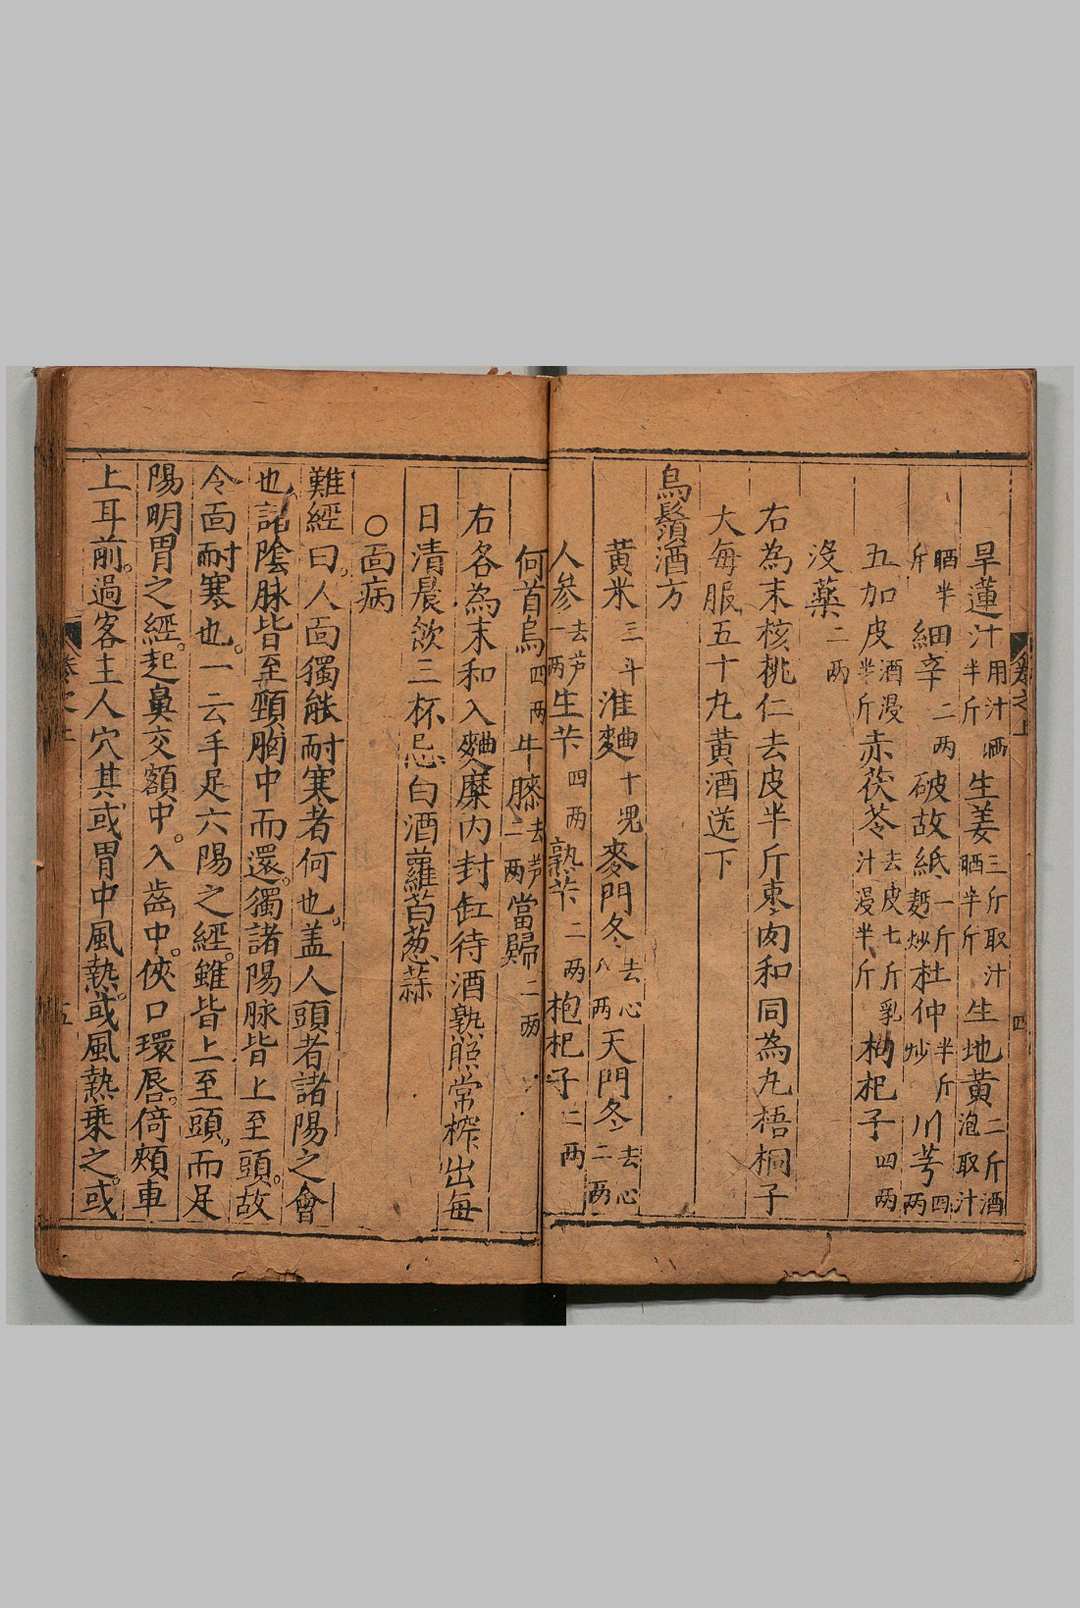 旱蓮汁半斤用汁晒生姜三斤取汁晒半斤生地黃二斤酒泡取汁
晒半斤細辛二兩破故紙一斤麪炒杜仲半斤炒川芎四兩
五加皮半斤酒浸赤茯苓去皮七斤乳汁浸半斤枸杞子四兩
沒藥二兩
右為末核桃仁去皮半斤棗肉和同為丸梧桐子
大每服五十九黃酒送下
烏鬚酒方
黃米三斗淮麯十兠麥門冬去心八兩天門冬去心二兩
人參去芦一兩生芐四兩熟芐二兩枸杞子二兩
何首烏四兩牛膝去芦二兩當歸二兩
右各為末和入麯糜內封缸待酒熟照常榨出每
日清晨飲三杯忌白酒蘿蔔葱蒜
○面病
難經曰。人面獨能耐寒者何也。盖人頭者諸陽之會
也諸陰脉皆至頸胸中而還。獨諸陽脉皆上至頭。故
令面耐寒也。一云手足六陽之經。雖皆上至頭。而足
陽明胃之經。起鼻交額中。入齒中。俠口環唇。倚頰車
上耳前。過客主人穴其或胃中風熱。或風熱乘之。或
卷之上
四
五